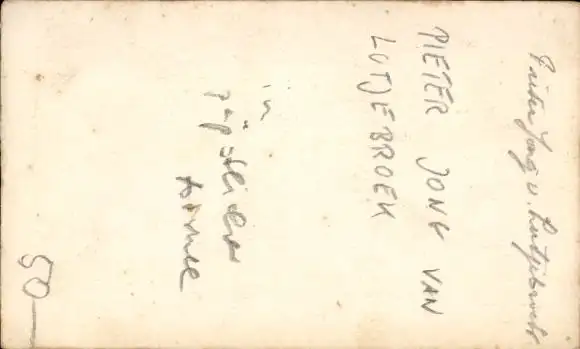 Pieter Jong v. Lutjebroek
PIETER JONG VAN
LUTJEBROEK
in
50—